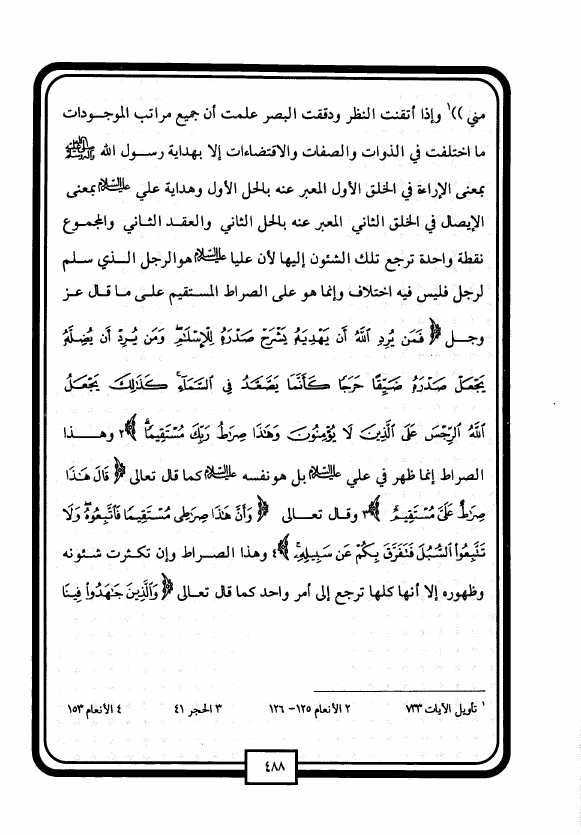 مني ))١ وإذا أتقنت النظر ودققت البصر علمت أن جميع مراتب الموجودات
ما اختلفت في الذوات والصفات والاقتضاءات إلا بهداية رسول الله ﷺ
بمعنى الإراءة في الخلق الأول المعبر عنه بالحل الأول وهداية علي عليه السلام بمعنى
الإيصال في الخلق الثاني المعبر عنه بالحل الثاني والعقد الثاني والمجموع
نقطة واحدة ترجع تلك الشئون إليها لأن عليا عليه السلام هو الرجل الذي سلم
لرجل فليس فيه اختلاف وإنما هو على الصراط المستقيم على ما قال عز
وجل ﴿ فَمَن يُرِدِ ٱللَّهُ أَن يَهْدِيَهُۥ يَشْرَحْ صَدْرَهُۥ لِلْإِسْلَٰمِۖ وَمَن يُرِدْ أَن يُضِلَّهُۥ
يَجْعَلْ صَدْرَهُۥ ضَيِّقًا حَرَجًا كَأَنَّمَا يَصَّعَّدُ فِى ٱلسَّمَآءِۚ كَذَٰلِكَ يَجْعَلُ
ٱللَّهُ ٱلرِّجْسَ عَلَى ٱلَّذِينَ لَا يُؤْمِنُونَ وَهَٰذَا صِرَٰطُ رَبِّكَ مُسْتَقِيمًاۗ ﴾٢ وهذا
الصراط إنما ظهر في علي عليه السلام بل هو نفسه عليه السلام كما قال تعالى ﴿ قَالَ هَٰذَا
صِرَٰطٌ عَلَىَّ مُسْتَقِيمٌ ﴾٣ وقال تعالى ﴿ وَأَنَّ هَٰذَا صِرَٰطِى مُسْتَقِيمًا فَٱتَّبِعُوهُۖ وَلَا
تَتَّبِعُوا۟ ٱلسُّبُلَ فَتَفَرَّقَ بِكُمْ عَن سَبِيلِهِۦۚ ﴾٤ وهذا الصراط وإن تكثرت شئونه
وظهوره إلا أنها كلها ترجع إلى أمر واحد كما قال تعالى ﴿ وَٱلَّذِينَ جَٰهَدُوا۟ فِينَا
١ تأويل الآيات ٧٣٣ ٢ الأنعام ١٢٥- ١٢٦ ٣ الحجر ٤١ ٤ الأنعام ١٥٣
٤٨٨